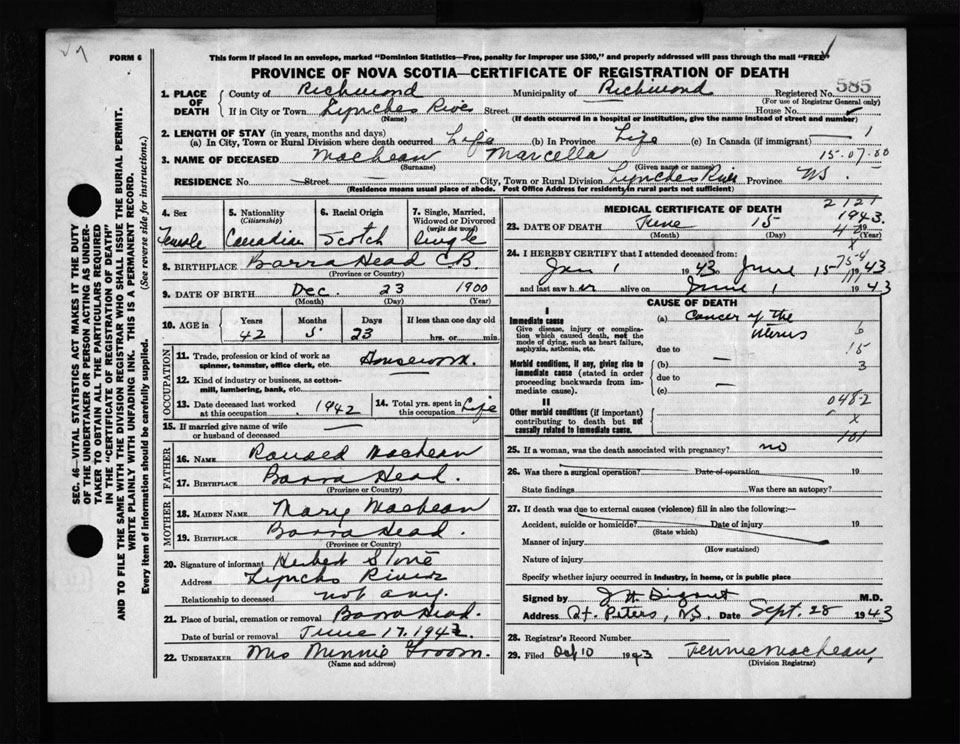 FORM 6
This form if placed in an envelope, marked "Dominion Statistics—Free, penalty for improper use $300," and properly addressed will pass through the mail "FREE"
PROVINCE OF NOVA SCOTIA—CERTIFICATE OF REGISTRATION OF DEATH
585
1. PLACE OF DEATH County of Richmond Municipality of Richmond Registered No.
(For use of Registrar General only)
If in City or Town Lynches River Street House No.
(Name) (If death occurred in a hospital or institution, give the name instead of street and number)
2. LENGTH OF STAY (in years, months and days)
(a) In City, Town or Rural Division where death occurred Life (b) In Province Life (c) In Canada (if immigrant)
3. NAME OF DECEASED MacLean Marcella
(Surname) (Given name or names)
RESIDENCE No. Street City, Town or Rural Division Lynches River Province NS
(Residence means usual place of abode. Post Office Address for residents in rural parts not sufficient)
4. Sex Female
5. Nationality (Citizenship) Canadian
6. Racial Origin Scotch
7. Single, Married, Widowed or Divorced (write the word) Single
8. BIRTHPLACE Barra Head C.B.
(Province or Country)
9. DATE OF BIRTH Dec. 23 1900
(Month) (Day) (Year)
10. AGE in Years Months Days If less than one day old
42 5 23 hrs. or min.
OCCUPATION
11. Trade, profession or kind of work as spinner, teamster, office clerk, etc. Housework.
12. Kind of industry or business, as cotton-mill, lumbering, bank, etc.
13. Date deceased last worked at this occupation 1942
14. Total yrs. spent in this occupation Life
15. If married give name of wife or husband of deceased
FATHER
16. NAME Ronald MacLean
17. BIRTHPLACE Barra Head.
(Province or Country)
MOTHER
18. MAIDEN NAME Mary MacLean
19. BIRTHPLACE Barra Head
(Province or Country)
20. Signature of informant Herbert Stone
Address Lynchs River
Relationship to deceased not any.
21. Place of burial, cremation or removal Barra Head.
Date of burial or removal June 17. 1943.
22. UNDERTAKER Mrs Minnie Groom.
(Name and address)
MEDICAL CERTIFICATE OF DEATH
23. DATE OF DEATH June 15 1943
(Month) (Day) (Year)
24. I HEREBY CERTIFY that I attended deceased from:
Jan 1 1943 to June 15 1943
and last saw her alive on June 1 1943
CAUSE OF DEATH
I
Immediate cause
Give disease, injury or complication which caused death, not the mode of dying, such as heart failure, asphyxia, asthenia, etc.
(a) Cancer of the Uterus
due to
Morbid conditions, if any, giving rise to immediate cause (stated in order proceeding backwards from immediate cause)
(b)
due to
(c)
II
Other morbid conditions (if important) contributing to death but not causally related to immediate cause.
25. If a woman, was the death associated with pregnancy? no
26. Was there a surgical operation? Date of operation 19
State findings Was there an autopsy?
27. If death was due to external causes (violence) fill in also the following:—
Accident, suicide or homicide? Date of injury 19
(State which)
Manner of injury
(How sustained)
Nature of injury
Specify whether injury occurred in industry, in home, or in public place
Signed by M.D.
Address St. Peters, N.S. Date Sept. 28 1943
28. Registrar's Record Number
29. Filed Oct 10 1943 Jennie MacLean,
(Division Registrar)
SEC. 46—VITAL STATISTICS ACT MAKES IT THE DUTY OF THE UNDERTAKER OR PERSON ACTING AS UNDERTAKER TO OBTAIN ALL THE PARTICULARS REQUIRED IN THE "CERTIFICATE OF REGISTRATION OF DEATH" AND TO FILE THE SAME WITH THE DIVISION REGISTRAR WHO SHALL ISSUE THE BURIAL PERMIT.
WRITE PLAINLY WITH UNFADING INK. THIS IS A PERMANENT RECORD.
Every item of information should be carefully supplied. (See reverse side for instructions.)